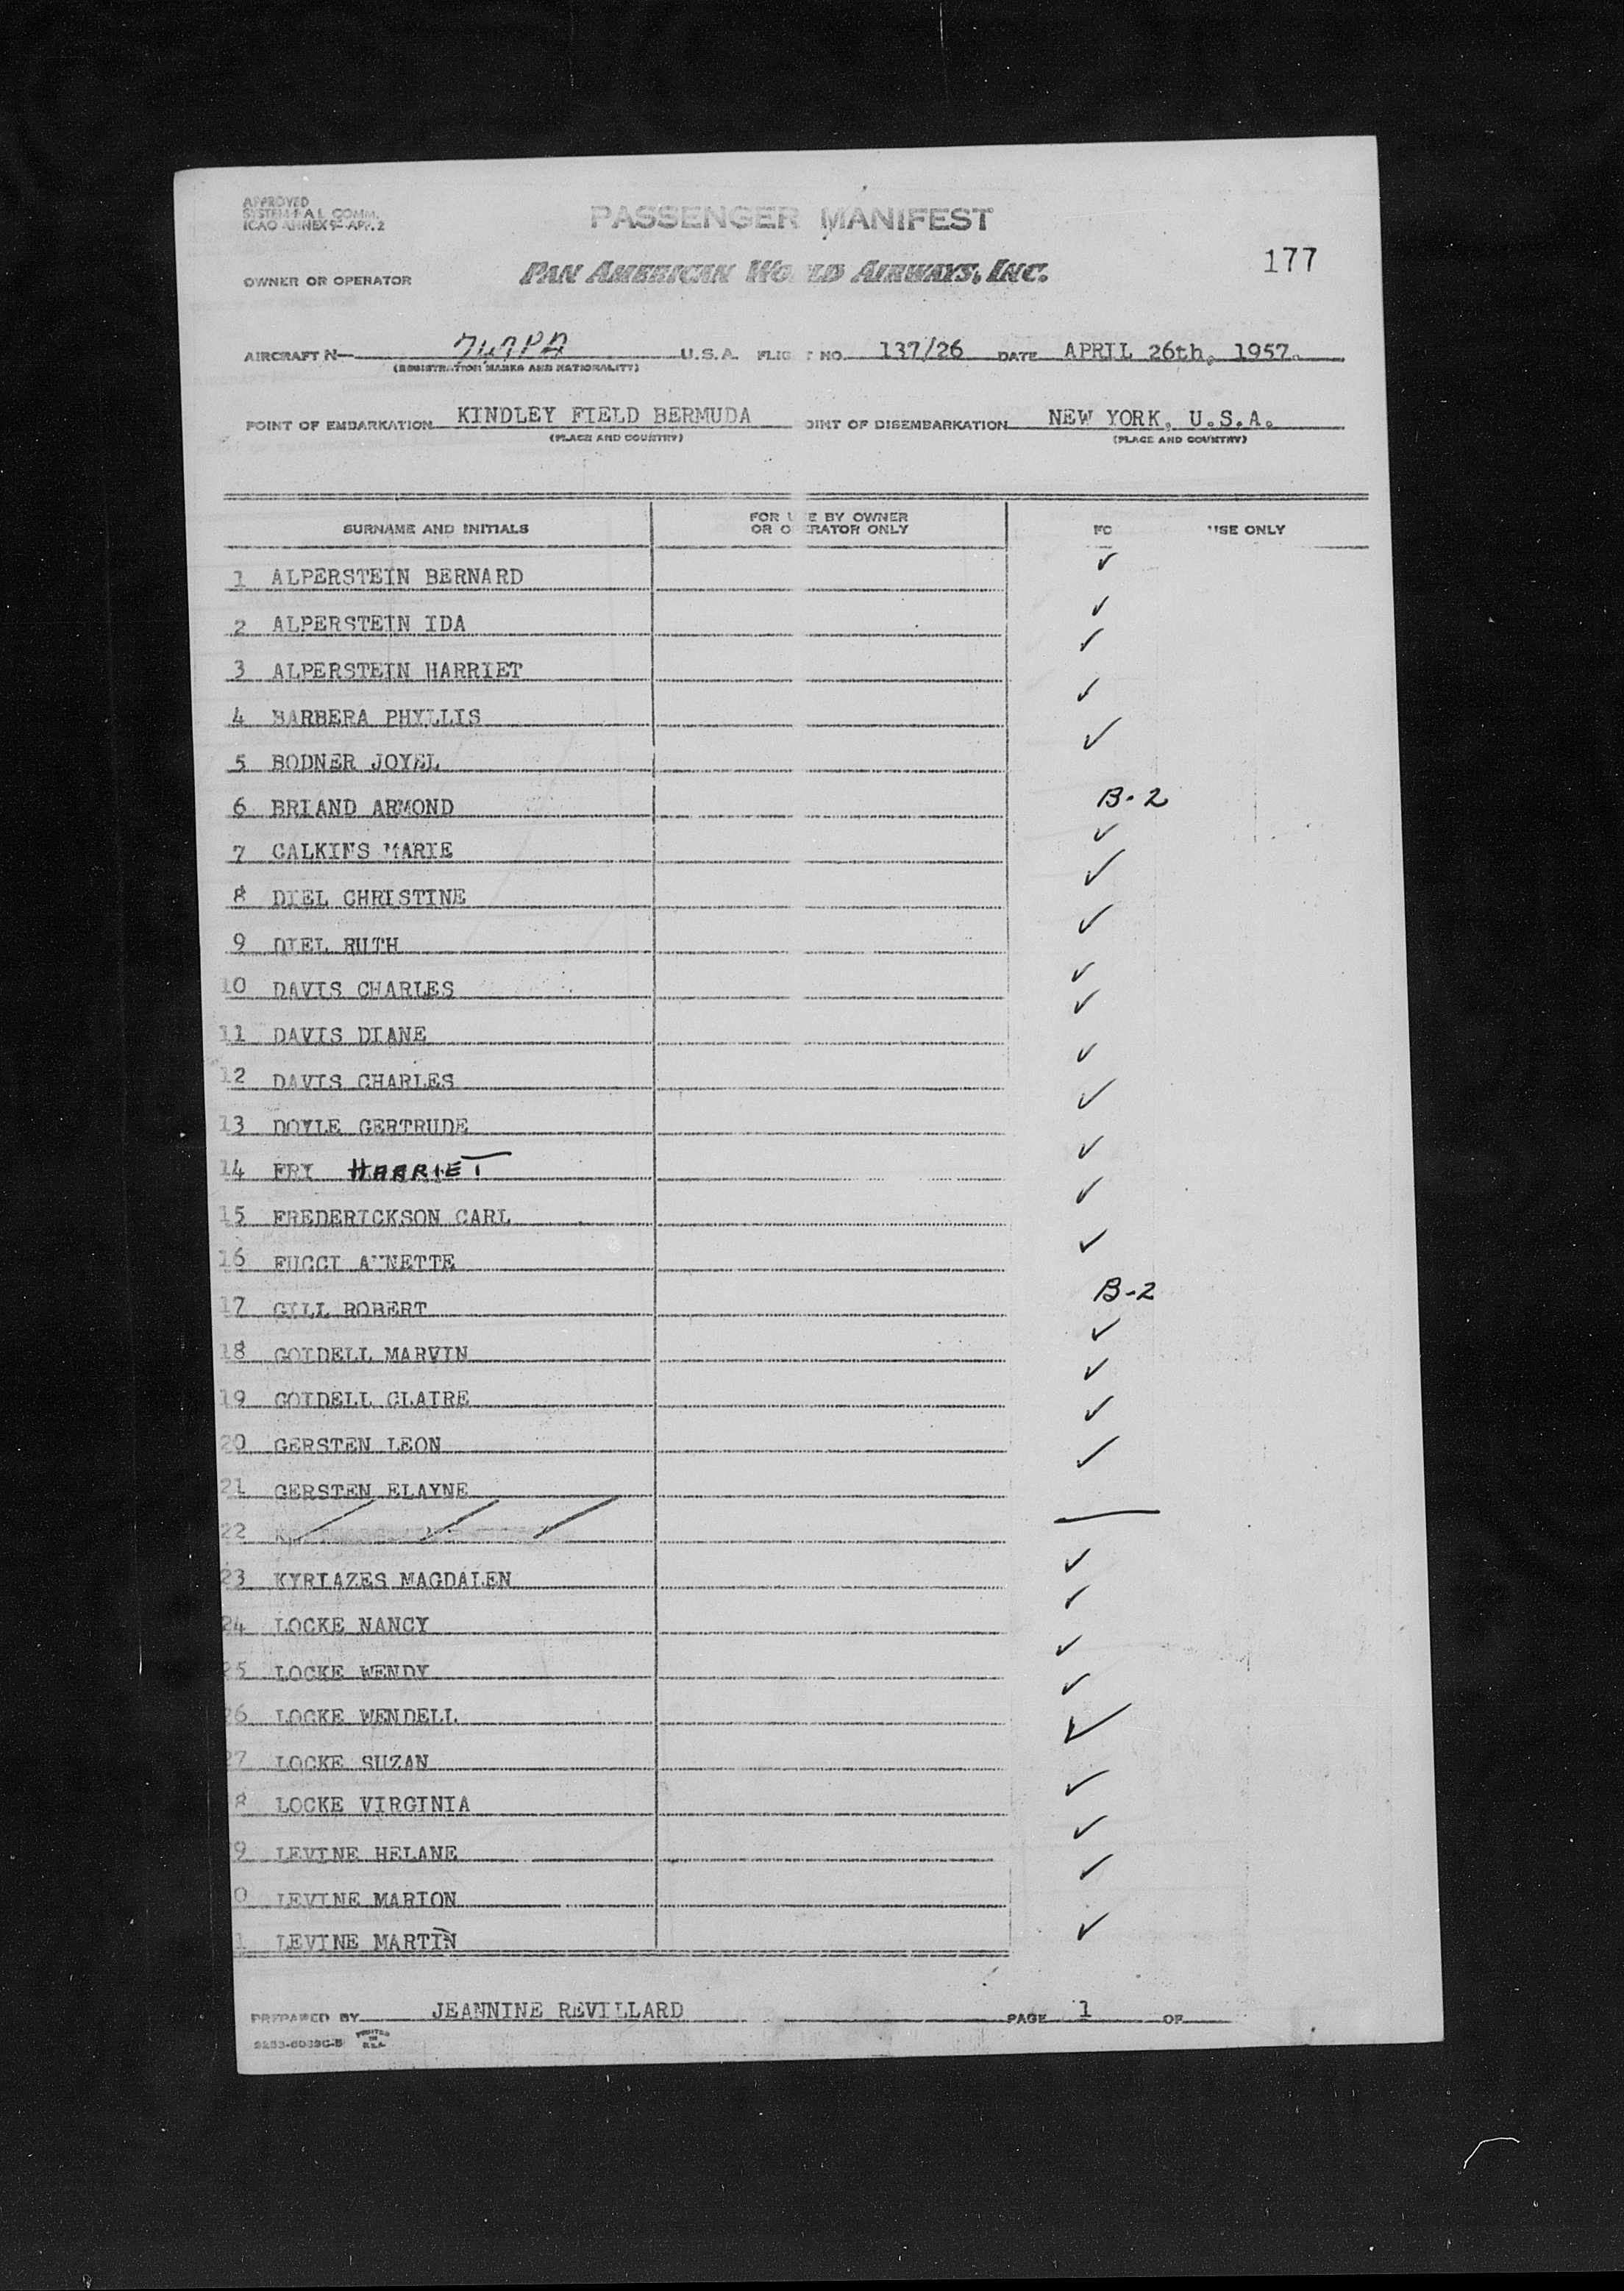 APPROVED
SYSTEM F A L COMM.
ICAO ANNEX 9 APP. 2
PASSENGER MANIFEST
177
OWNER OR OPERATOR PAN AMERICAN WO LD AIRWAYS, INC.
AIRCRAFT N— U.S.A. FLIG T NO. 137/26 DATE APRIL 26th, 1957.
(REGISTRATION MARKS AND NATIONALITY)
POINT OF EMBARKATION KINDLEY FIELD BERMUDA OINT OF DISEMBARKATION NEW YORK, U.S.A.
(PLACE AND COUNTRY) (PLACE AND COUNTRY)
SURNAME AND INITIALS FOR U E BY OWNER OR O ERATOR ONLY FO USE ONLY
1 ALPERSTEIN BERNARD ✓
2 ALPERSTEIN IDA ✓
3 ALPERSTEIN HARRIET ✓
4 BARBERA PHYLLIS ✓
5 BODNER JOYEL ✓
6 BRIAND ARMOND B-2
7 CALKINS MARIE ✓
8 DIEL CHRISTINE ✓
9 DIEL RUTH ✓
10 DAVIS CHARLES ✓
11 DAVIS DIANE ✓
12 DAVIS CHARLES ✓
13 DOYLE GERTRUDE ✓
14 FRY HARRIET ✓
15 FREDERICKSON CARL ✓
16 FUCCI ANNETTE ✓
17 GILL ROBERT B-2
18 GOIDELL MARVIN ✓
19 GOIDELL CLAIRE ✓
20 GERSTEN LEON ✓
21 GERSTEN ELAYNE ✓
22 —
23 KYRIAZES MAGDALEN ✓
24 LOCKE NANCY ✓
25 LOCKE WENDY ✓
26 LOCKE WENDELL ✓
27 LOCKE SUZAN ✓
8 LOCKE VIRGINIA ✓
9 LEVINE HELANE ✓
0 LEVINE MARION ✓
1 LEVINE MARTIN ✓
PREPARED BY JEANNINE REVILLARD PAGE 1 OF
PRINTED IN U.S.A.